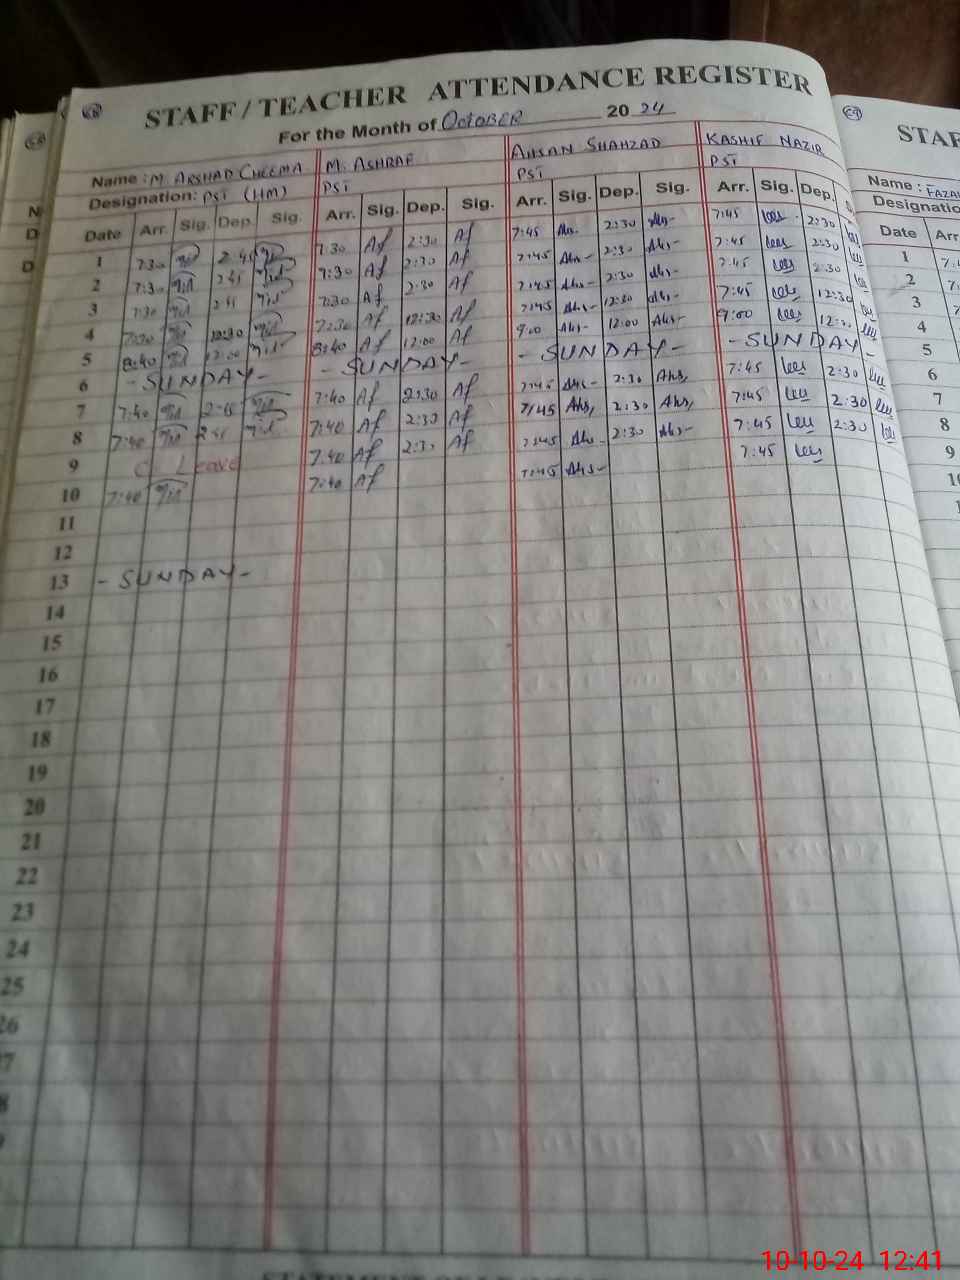 68
STAFF / TEACHER ATTENDANCE REGISTER
For the Month of OCTOBER 2024
Name : M. ARSHAD CHEEMA M. ASHRAF AHSAN SHAHZAD KASHIF NAZIR
Designation: PST (HM) PST PST PST
Date Arr. Sig. Dep. Sig. Arr. Sig. Dep. Sig. Arr. Sig. Dep. Sig. Arr. Sig. Dep. S
1 7:30 2:45 7:30 Af 2:30 Af 7:45 Ahs- 2:30 Ahs- 7:45 2:30
2 7:30 2:45 7:30 Af 2:30 Af 7:45 Ahs- 2:30 Ahs- 7:45 2:30
3 7:30 2:45 7:30 Af 2:30 Af 7:45 Ahs- 2:30 Ahs- 7:45 2:30
4 7:30 12:30 7:30 Af 12:30 Af 7:45 Ahs- 12:30 Ahs- 7:45 12:30
5 8:40 12:00 8:40 Af 12:00 Af 9:00 Ahs- 12:00 Ahs- 9:00
6 - SUNDAY - - SUNDAY - - SUNDAY - - SUNDAY -
7 7:40 7:40 Af 2:30 Af 7:45 Ahs- 2:30 Ahs, 7:45 2:30
8 7:40 7:40 Af 2:30 Af 7:45 Ahs, 2:30 Ahs, 7:45 2:30
9 C Leave 7:40 Af 2:30 Af 7:45 Ahs- 2:30 Ahs- 7:45 2:30
10 7:40 7:40 Af 7:45 Ahs- 7:45
11
12
13 - SUNDAY -
14
15
16
17
18
19
20
21
22
23
24
25
26
7
8
9
69
STAF
Name : FAZA
Designatio
Date Arr
1 7:
2 7:
3
4
5
6
7
8
9
10
10-10-24 12:41